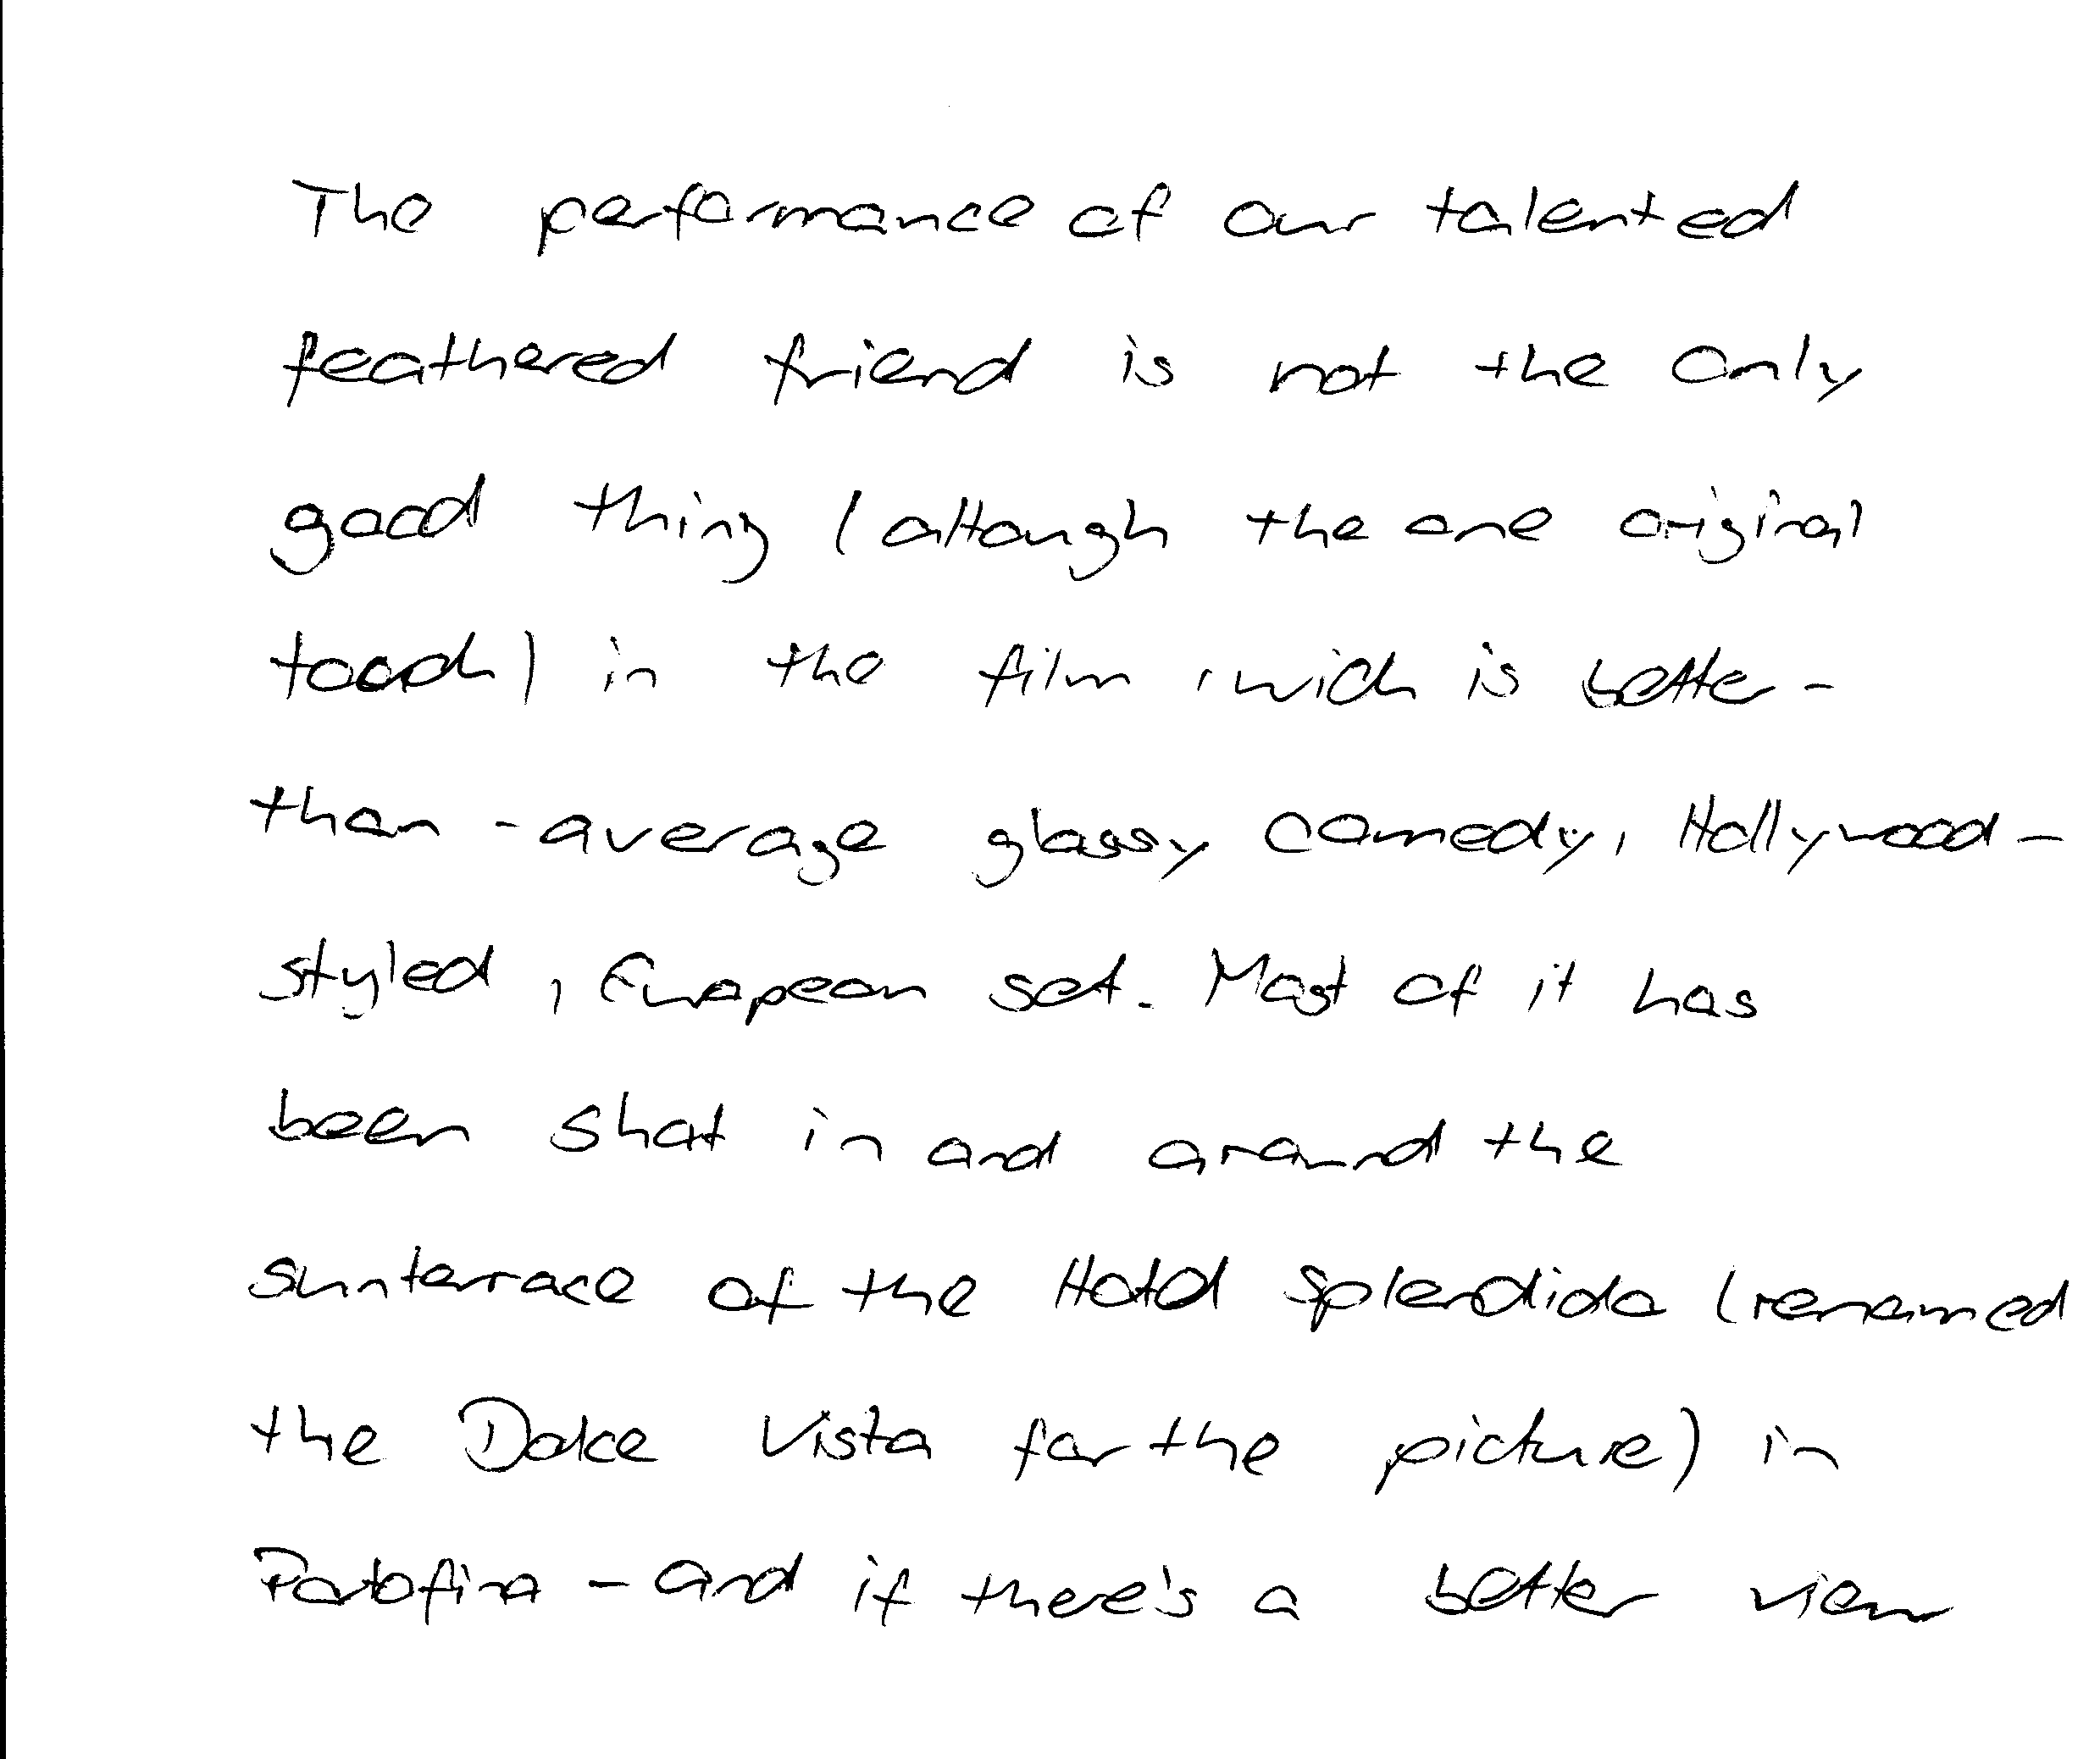 The performance of our talented
feathered friend is not the only
good thing (altough the one original
touch) in the film, wich is better-
than-average glossy comedy, Hollywood-
styled, European set. Most of it has
been shot in and around the
sunterrace of the Hotel Splendido (renamed
the Dolce Vista for the picture) in
Portofino - and if there's a better view